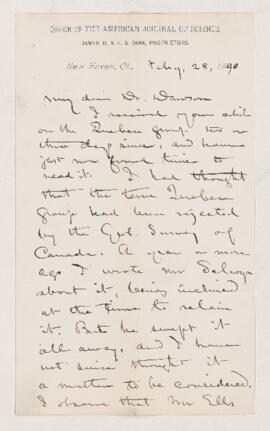 OFFICE OF THE AMERICAN JOURNAL OF SCIENCE
JAMES D. & E. S. DANA, PROPRIETORS.
New Haven, Ct., Feb'y 28, 1890
My dear Dr. Dawson
I received your article
on the Quebec Group two or
three days since, and have
just now found time to
read it. I had thought
that the term Quebec
Group had been rejected
by the Geol. Survey of
Canada. A year or more
ago I wrote Mr Selwyn
about it, being inclined
at the time to retain
it. But he swept it
all away, and I have
not since thought it
a matter to be considered.
I observe that Mr Ells